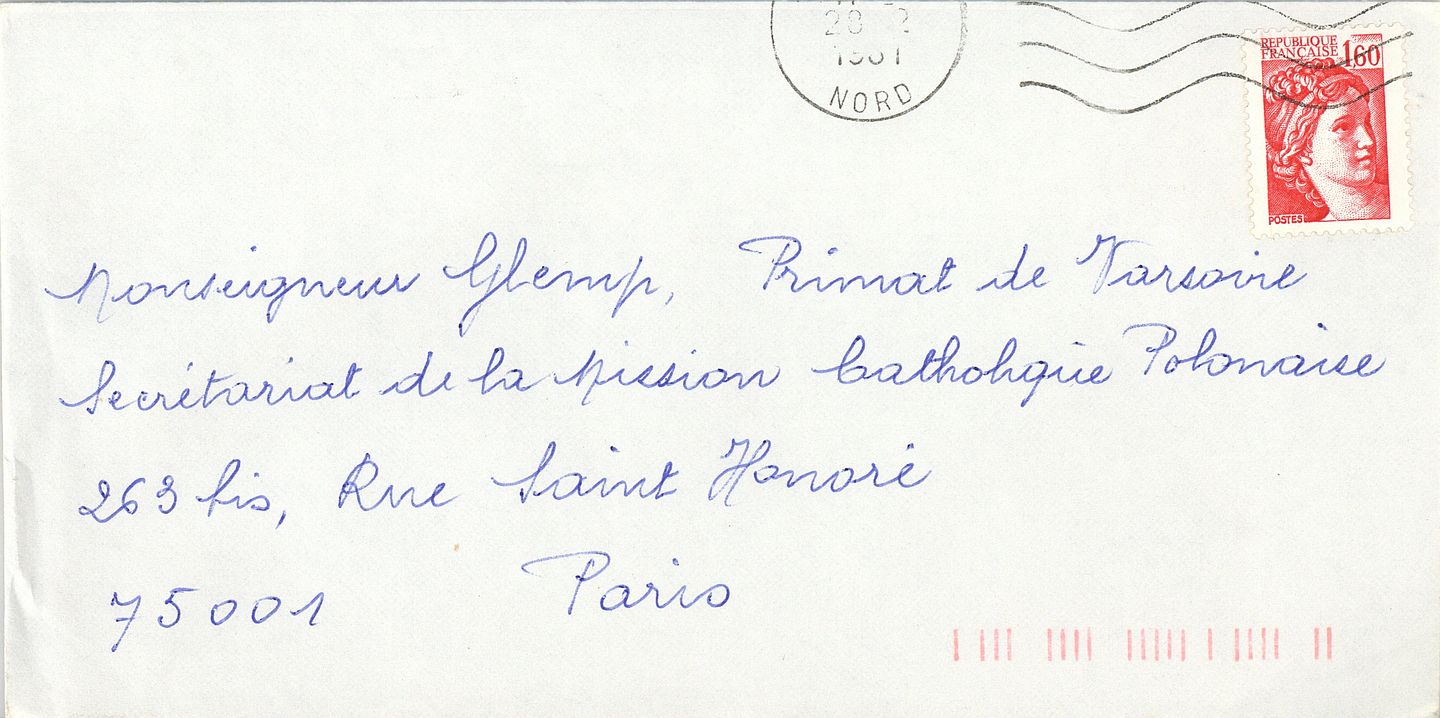 20 2
1981
NORD
REPUBLIQUE
FRANÇAISE 1,60
POSTES
Monseigneur Glemp, Primat de Varsovie
Secrétariat de la Mission Catholique Polonaise
263 bis, Rue Saint Honoré
75001 Paris